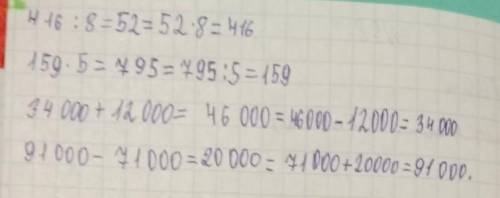 416 : 8 = 52 = 52 · 8 = 416
159 · 5 = 795 = 795 : 5 = 159
34 000 + 12 000 = 46 000 = 46000 - 12000 = 34 000
91 000 - 71 000 = 20 000 = 71 000 + 20000 = 91 000.